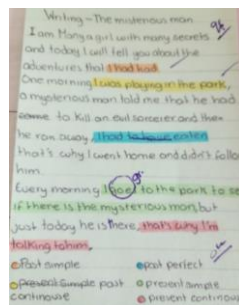 Writing - The misterious man
I am Many a girl with many secrets
and today I will tell you about the
adventures that I had had
One morning I was playing in the park,
a mysterious man told me that he had
to kill an evil sorcerer and then
he ran away. I had to have eaten
that's why I went home and didn't follo
him.
Every morning I goe to the park to se
if there is the mysterious man, but
just today he is there, that's why I'm
talking to him.
Past simple
past perfect
Present Simple past
continouse
present simple
present continous